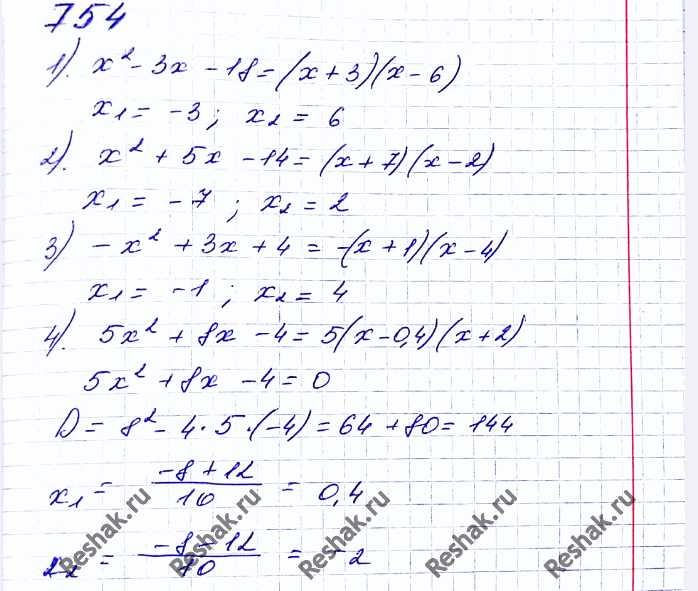 754
1). x² - 3x - 18 = (x + 3)(x - 6)
x₁ = -3; x₂ = 6
2). x² + 5x - 14 = (x + 7)(x - 2)
x₁ = -7; x₂ = 2
3) -x² + 3x + 4 = -(x + 1)(x - 4)
x₁ = -1; x₂ = 4
4). 5x² + 8x - 4 = 5(x - 0,4)(x + 2)
5x² + 8x - 4 = 0
D = 8² - 4·5·(-4) = 64 + 80 = 144
x₁ = (-8 + 12)/10 = 0,4
x₂ = (-8 - 12)/10 = -2
Reshak.ru Reshak.ru Reshak.ru Reshak.ru Reshak.ru